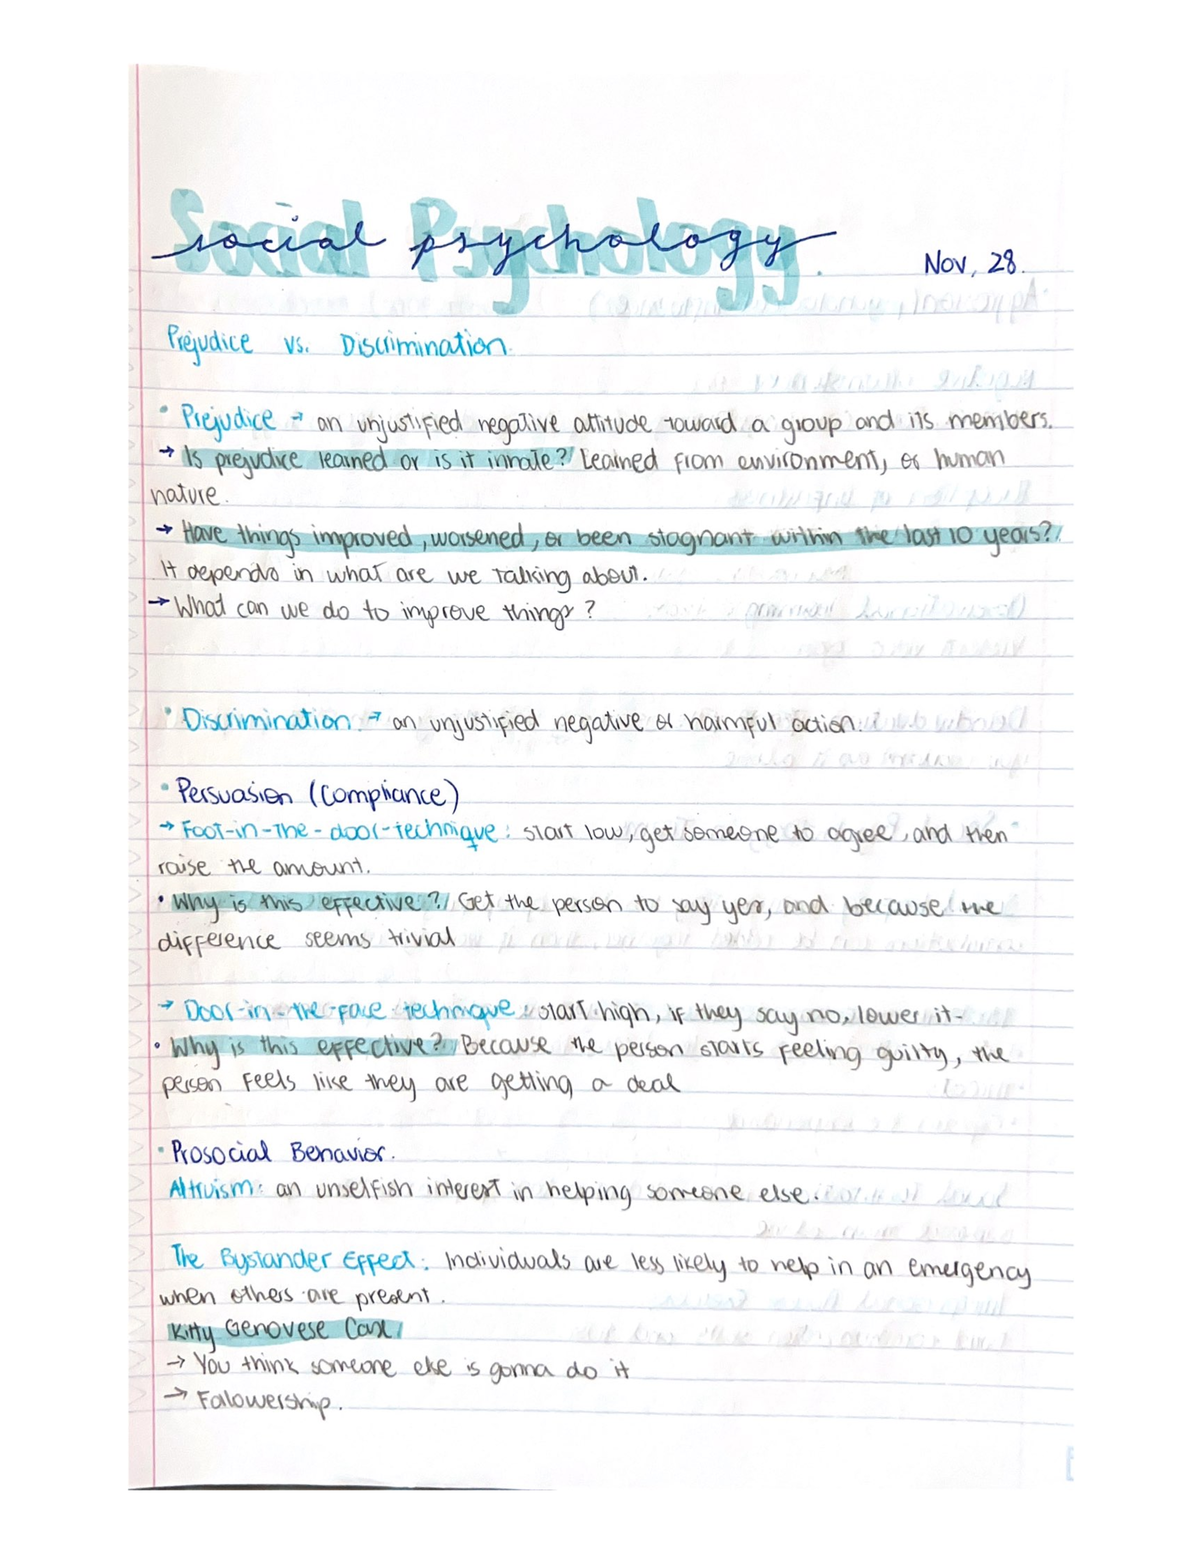 Social Psychology.
social psychology
Nov, 28.
Prejudice vs. Discrimination.
• Prejudice → an unjustified negative attitude toward a group and its members.
→ Is prejudice learned or is it innate? Learned from environment, or human
nature.
→ Have things improved, worsened, or been stagnant within the last 10 years?
It depends in what are we talking about.
→ What can we do to improve things?
• Discrimination → an unjustified negative or harmful action.
• Persuasion (Compliance)
→ Foot-in-the-door-technique: start low, get someone to agree, and then
raise the amount.
• Why is this effective? Get the person to say yes, and because the
difference seems trivial
→ Door-in-the-face technique: start high, if they say no, lower it-
• Why is this effective? Because the person starts feeling guilty, the
person feels like they are getting a deal
• Prosocial Behavior.
Altruism: an unselfish interest in helping someone else.
The Bystander Effect: Individuals are less likely to help in an emergency
when others are present.
Kitty Genovese Case
→ You think someone else is gonna do it
→ Followership.